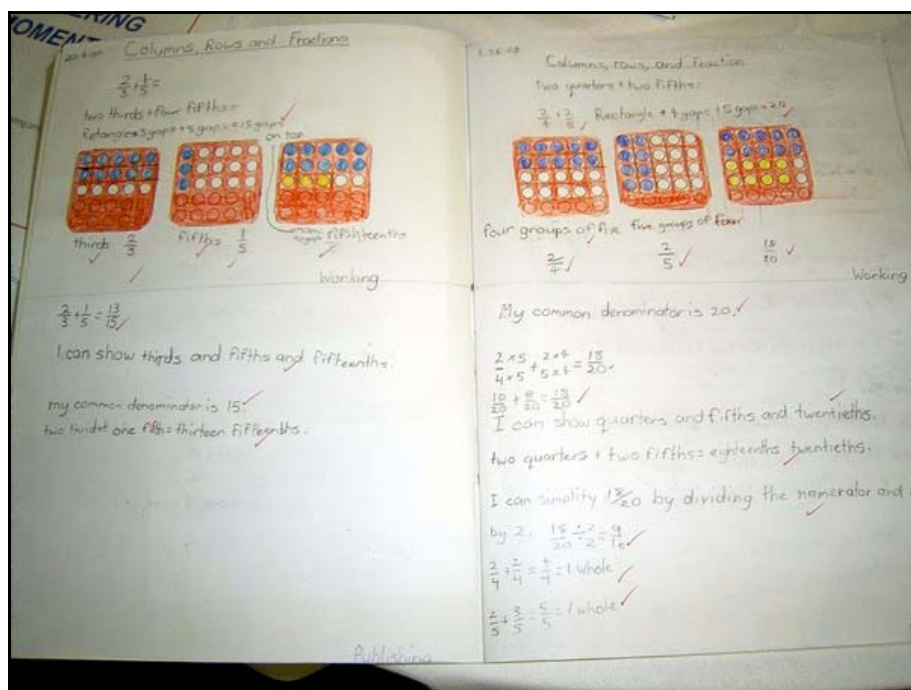 ERING
MOMEN
Columns, Rows and Fractions
2/3 + 1/5 =
two thirds + four fifths =
Retangle + 3 gaps + 5 gaps = 15 gaps
on top
thirds 2/3
fifths 1/5
fifthteenths
Working
2/3 + 1/5 = 13/15
I can show thirds and fifths and fifteenths.
my common denominator is 15.
two thirds + one fifth = thirteen fifteenths.
Publishing
Columns, rows, and fraction
two quarters + two fifths =
2/4 + 2/5 Rectangle + 4 gaps + 5 gaps = 20
four groups of five five groups of four
2/4
2/5
18/20
Working
My common denominator is 20.
2×5/4×5 + 2×4/5×4 = 18/20.
10/20 + 8/20 = 18/20
I can show quarters and fifths and twentieths.
two quarters + two fifths = eighteenths twentieths.
I can simplify 18/20 by dividing the namerator and
by 2. 18/20 ÷2/÷2 = 9/10
2/4 + 2/4 = 4/4 = 1 whole
2/5 + 3/5 = 5/5 = 1 whole